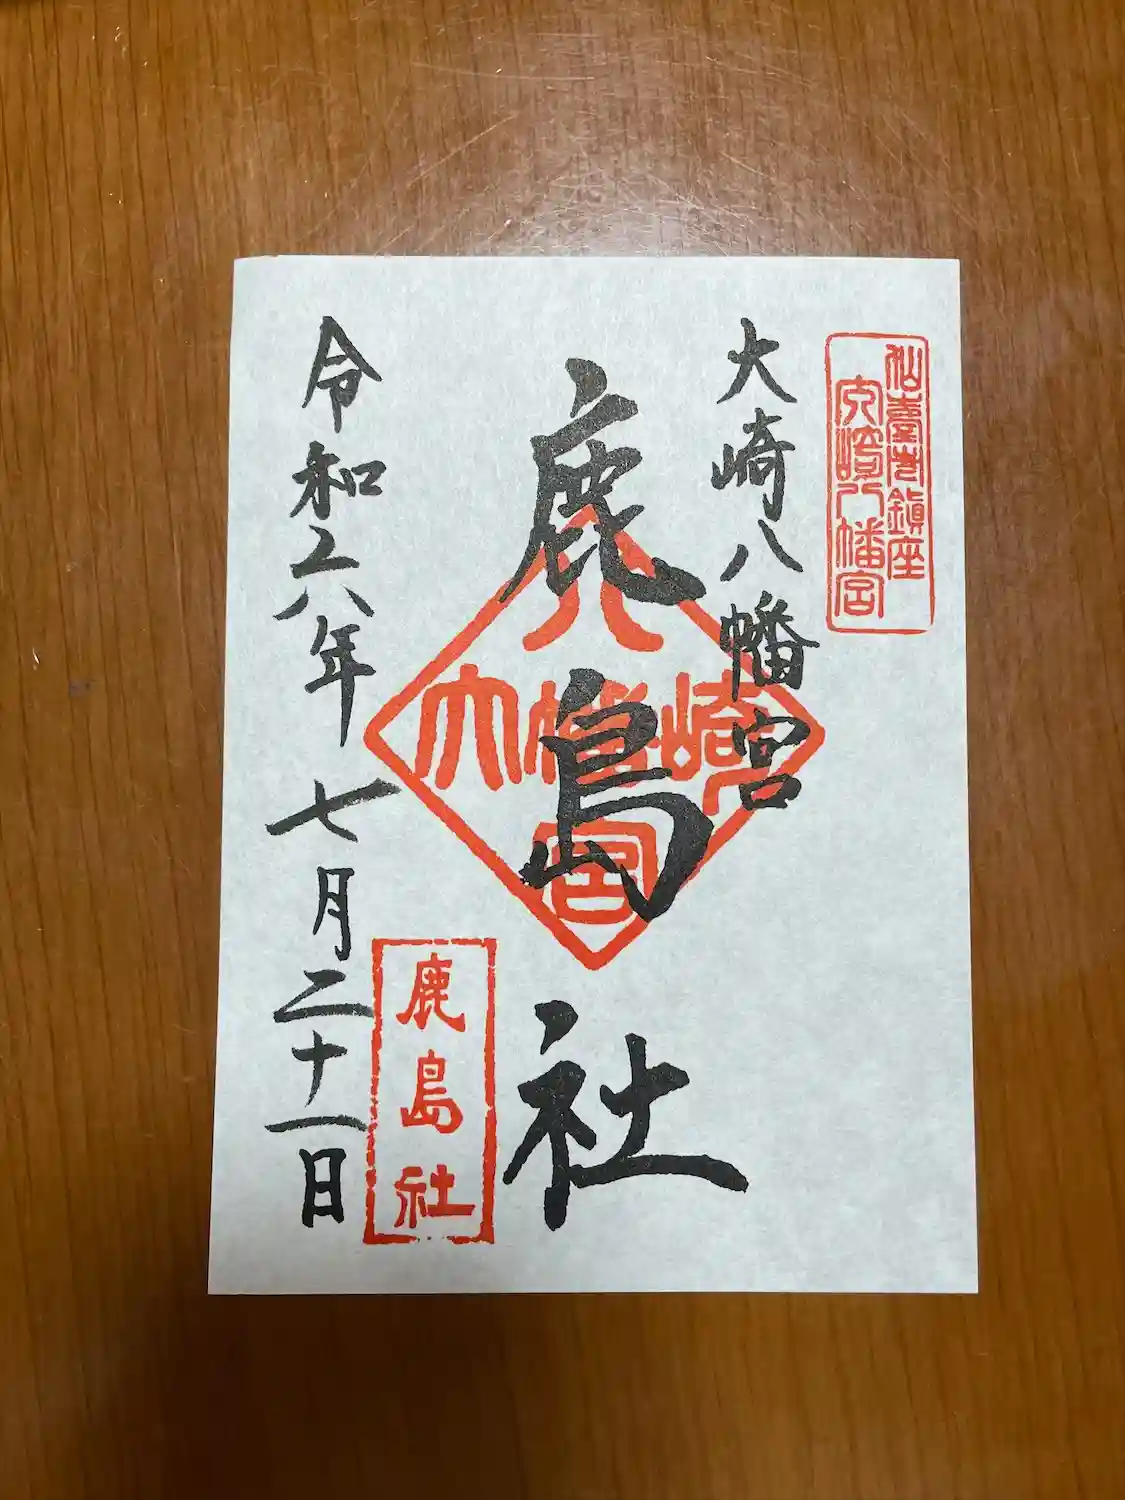 仙臺市鎮座
大崎八幡宮
大崎八幡宮
鹿島社
八
大幡崎
宮
鹿島社
令和六年七月二十一日